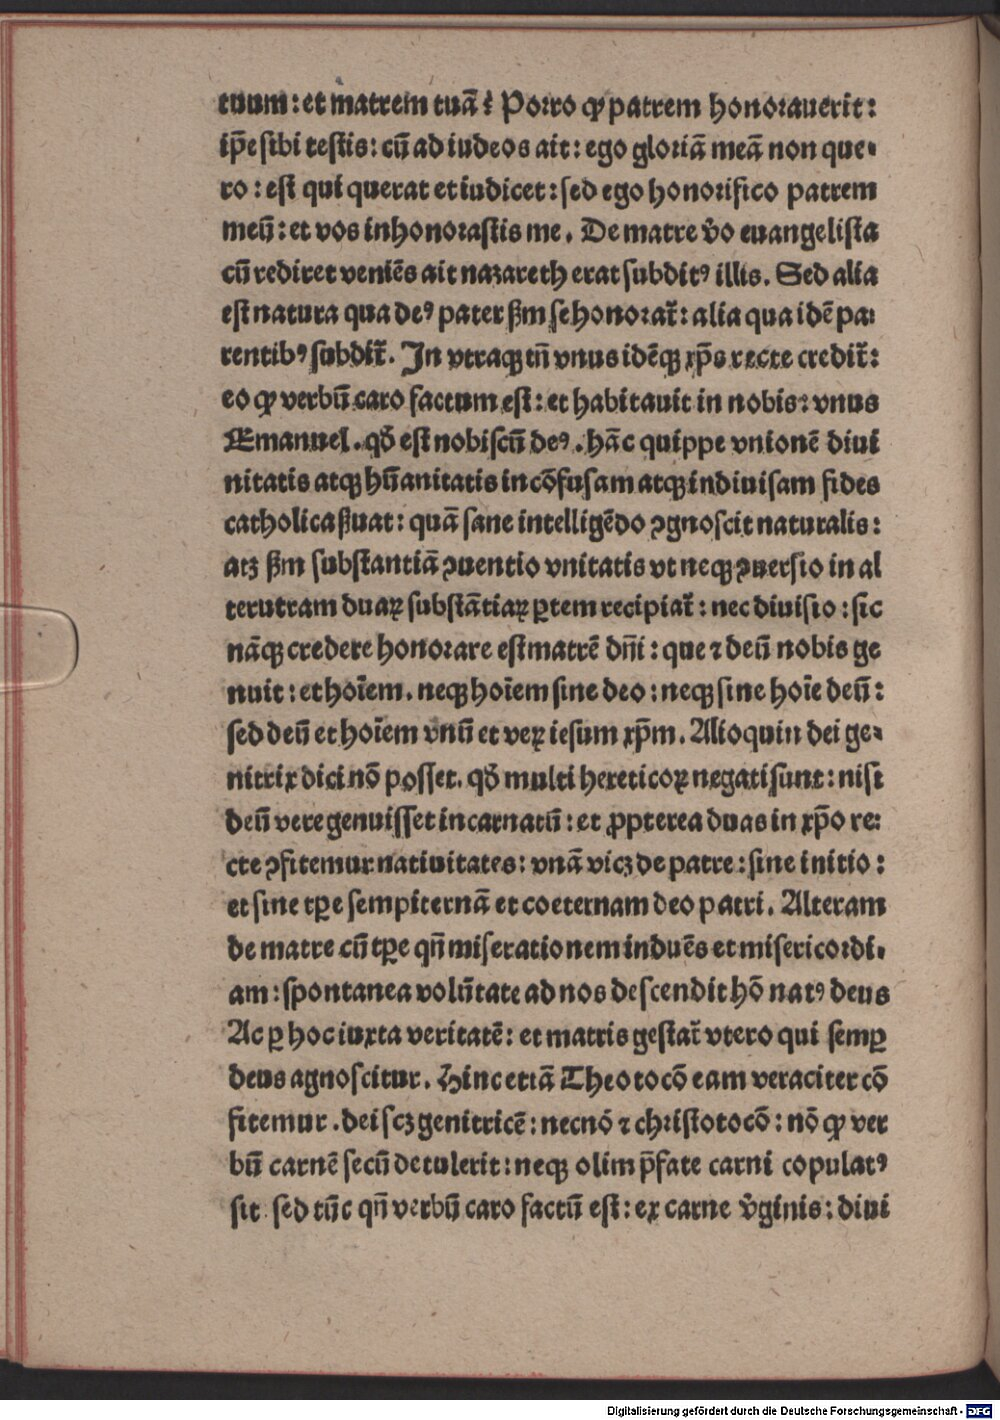 tuum: et matrem tuā? Porro ꝙ patrem honorauerit:
ip̄e sibi testis: cū ad iudeos ait: ego gloriā meā non que-
ro: est qui querat et iudicet: sed ego honorifico patrem
meū: et vos inhonorastis me. De matre v̄o euangelista
cū rediret veniēs ait nazareth erat subditꝰ illis. Sed alia
est natura qua deꝰ pater ẜm se honorat̄: alia qua idē pa:
rentibꝰ subdit̄. In vtraqꝫ tn̄ vnus idēqꝫ xp̄s recte credit̄:
eo ꝙ verbū caro factum est: et habitauit in nobis: vnus
Emanuel. qd̄ est nobiscū deꝰ. hāc quippe vnionē diui
nitatis atqꝫ hūanitatis incōfusam atqꝫ indiuisam fides
catholica ẜuat: quā sane intelligēdo ꝯgnoscit naturalis:
atꝫ ẜm substantiā ꝯuentio vnitatis vt neqꝫ ꝯuersio in al
terutram duaꝝ substātiaꝝ ꝑtem recipiat̄: nec diuisio: sic
nāqꝫ credere honorare est matrē dn̄i: que ⁊ deū nobis ge
nuit: et hoīem. neqꝫ hoīem sine deo: neqꝫ sine hoīe deū:
sed deū et hoīem vnū et veꝝ iesum xp̄m. Alioquin dei ge-
nitrix dici nō posset. qd̄ multi hereticoꝝ negati sunt: nisi
deū vere genuisset incarnatū: et ꝓpterea duas in xp̄o re:
cte ꝯfitemur natiuitates: vnā vicꝫ de patre: sine initio:
et sine tꝑe sempiternā et coeternam deo patri. Alteram
de matre cū tꝑe qn̄ miserationem induēs et misericordi-
am: spontanea volūtate ad nos descendit hō natꝰ deus
Ac ꝑ hoc iuxta veritatē: et matris gestat̄ vtero qui semꝑ
deus agnoscitur. Hinc etiā Theotocō eam veraciter cō
fitemur. dei scꝫ genitricē: necnō ⁊ christotocō: nō ꝙ ver
bū carnē secū detulerit: neqꝫ olim p̄fate carni copulatꝰ
sit: sed tūc qn̄ verbū caro factū est: ex carne v̄ginis: diui
Digitalisierung gefördert durch die Deutsche Forschungsgemeinschaft - DFG